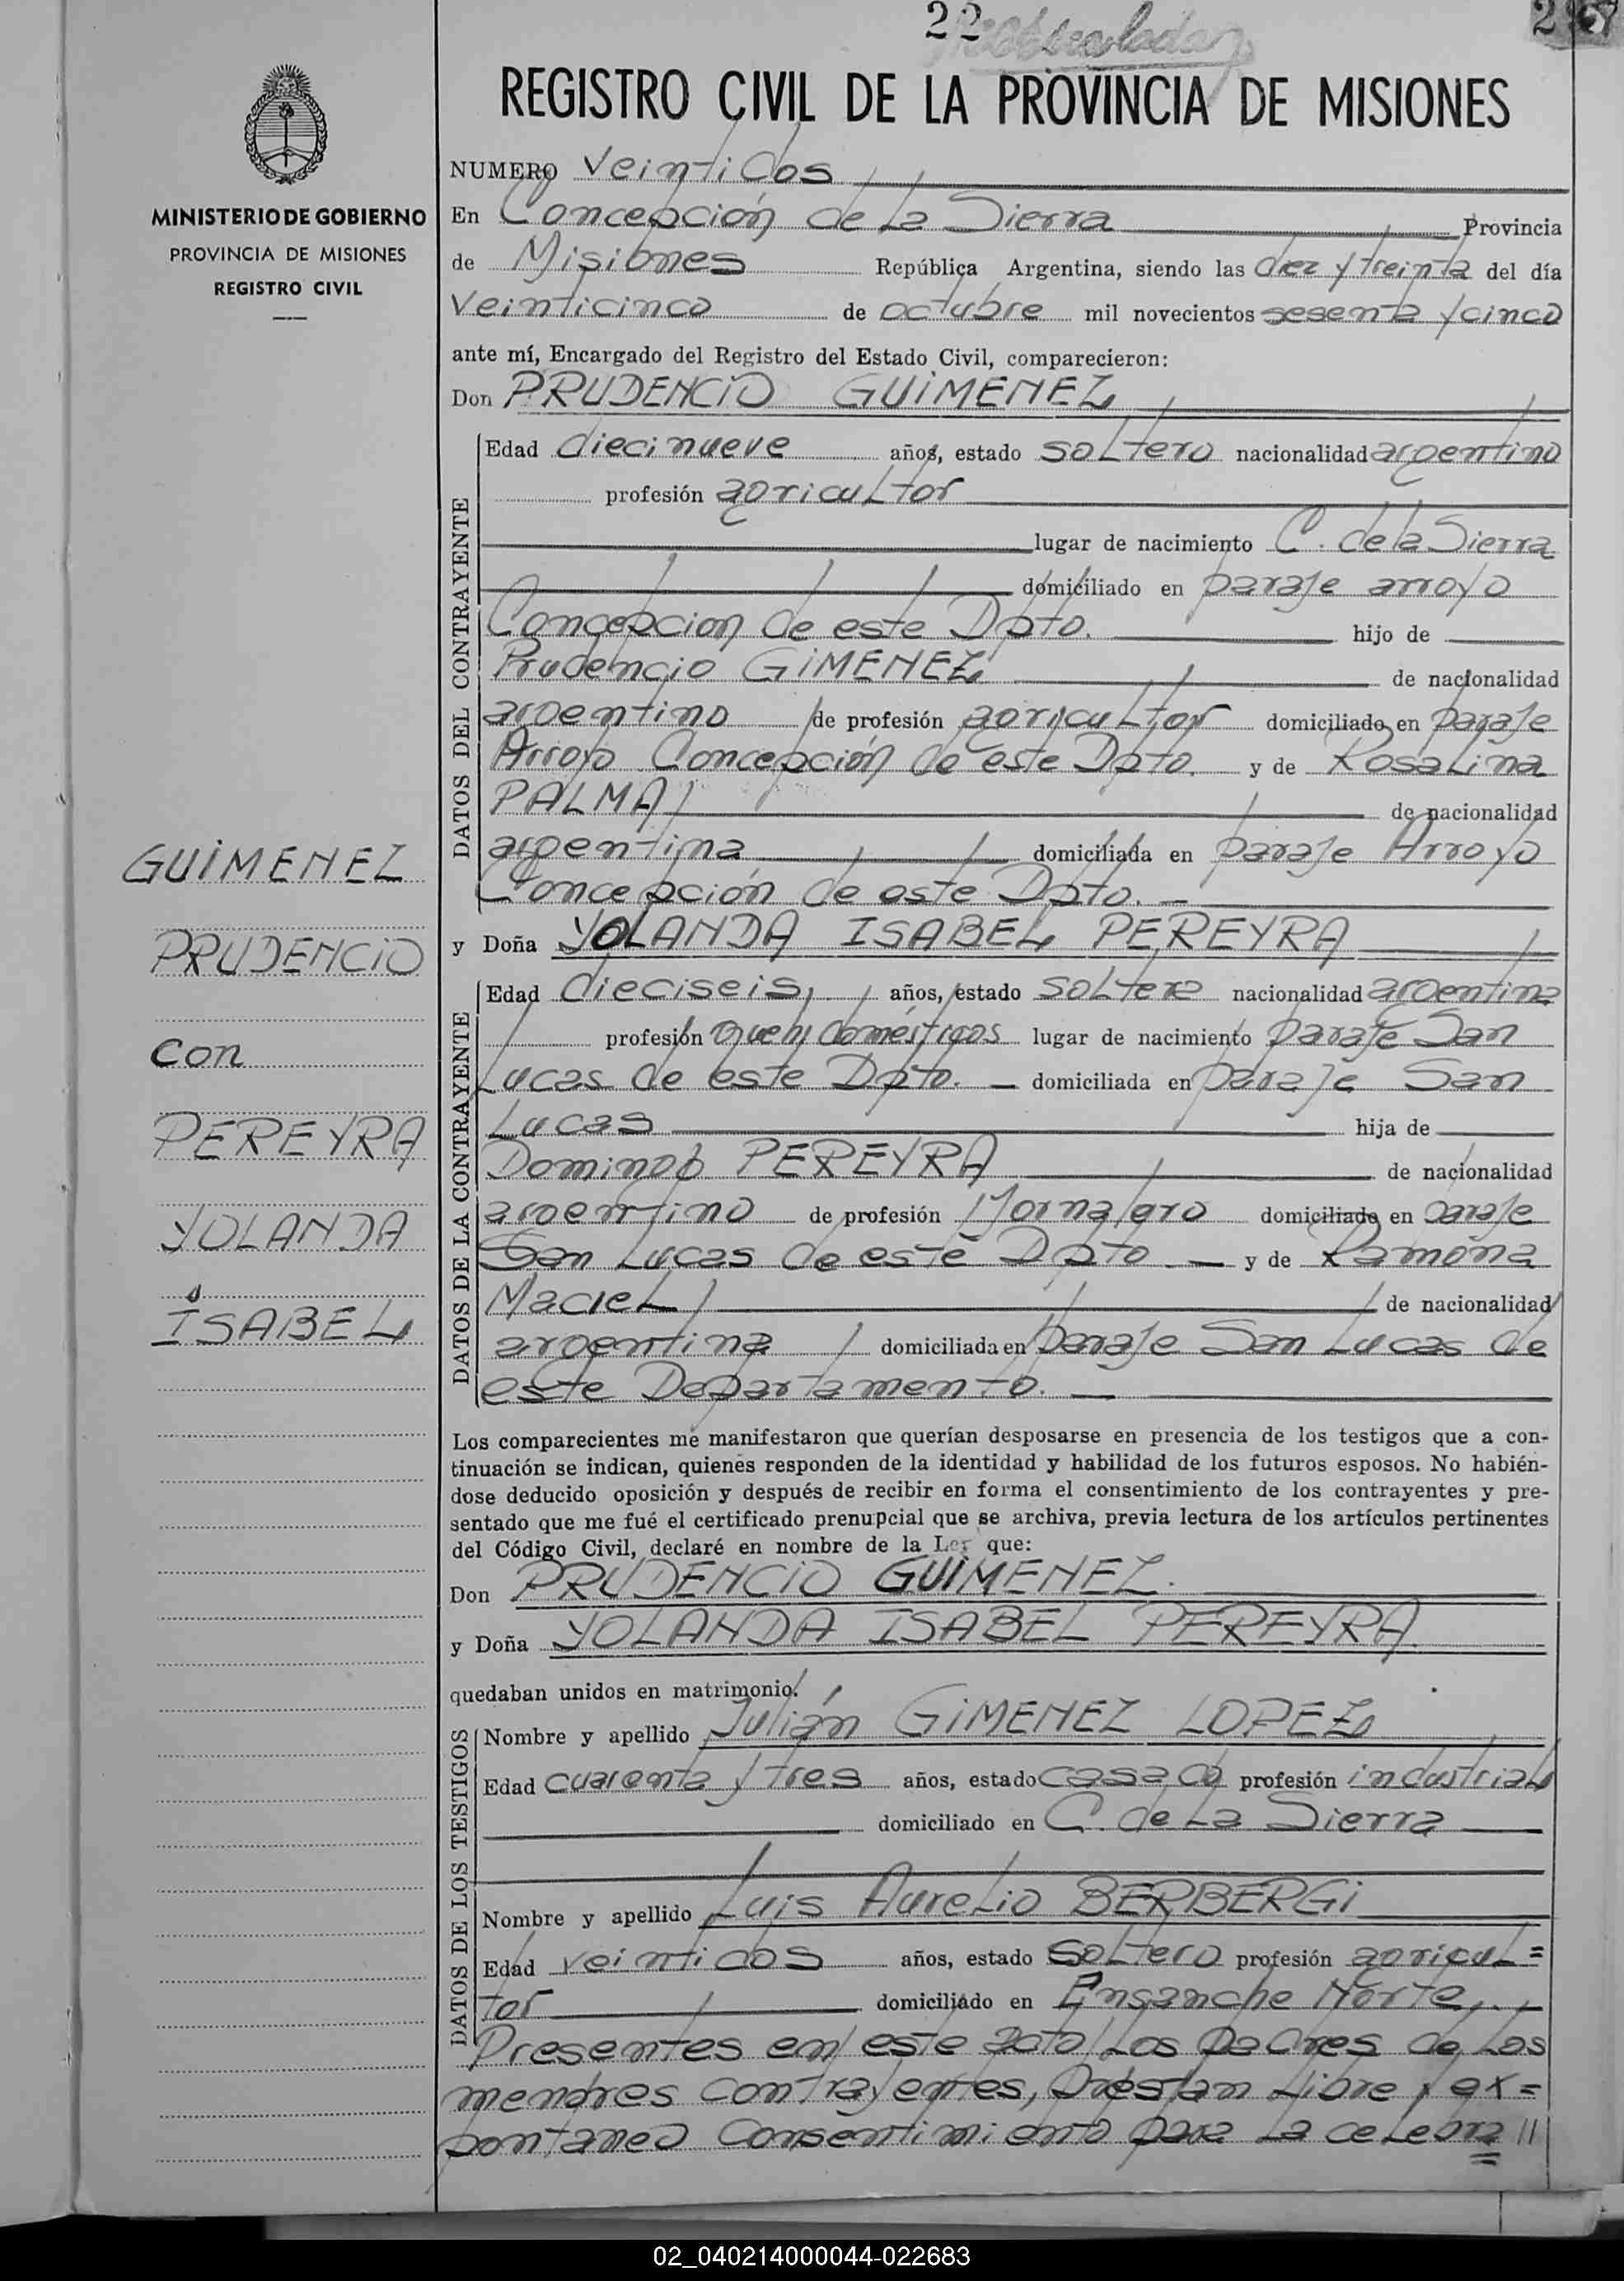 22
REGISTRO CIVIL DE LA PROVINCIA DE MISIONES
MINISTERIO DE GOBIERNO
PROVINCIA DE MISIONES
REGISTRO CIVIL
NUMERO Veintidos
En Concepción de La Sierra Provincia
de Misiones República Argentina, siendo las diez y treinta del día
veinticinco de octubre mil novecientos sesenta y cinco
ante mí, Encargado del Registro del Estado Civil, comparecieron:
Don PRUDENCIO GUIMENEZ
DATOS DEL CONTRAYENTE
Edad diecinueve años, estado soltero nacionalidad argentino
profesión agricultor
lugar de nacimiento C. de la Sierra
domiciliado en paraje arroyo
Concepcion de este Dpto. hijo de
Prudencio GIMENEZ de nacionalidad
argentino de profesión agricultor domiciliado en paraje
Arroyo Concepción de este Dpto. y de Rosalina
PALMA de nacionalidad
argentina domiciliada en paraje Arroyo
Concepción de este Dpto.
y Doña YOLANDA ISABEL PEREYRA
DATOS DE LA CONTRAYENTE
Edad dieciseis años, estado soltera nacionalidad argentina
profesión queh. domésticos lugar de nacimiento paraje San
Lucas de este Dpto. domiciliada en paraje San
Lucas hija de
Domingo PEREYRA de nacionalidad
argentino de profesión Jornalero domiciliado en paraje
San Lucas de este Dpto y de Ramona
Maciel de nacionalidad
argentina domiciliada en paraje San Lucas de
este Departamento.
GUIMENEZ
PRUDENCIO
con
PEREYRA
YOLANDA
ISABEL
Los comparecientes me manifestaron que querían desposarse en presencia de los testigos que a con-
tinuación se indican, quienes responden de la identidad y habilidad de los futuros esposos. No habién-
dose deducido oposición y después de recibir en forma el consentimiento de los contrayentes y pre-
sentado que me fué el certificado prenupcial que se archiva, previa lectura de los artículos pertinentes
del Código Civil, declaré en nombre de la Ley que:
Don PRUDENCIO GUIMENEZ.
y Doña YOLANDA ISABEL PEREYRA.
quedaban unidos en matrimonio.
DATOS DE LOS TESTIGOS
Nombre y apellido Julián GIMENEZ LOPEZ
Edad cuarenta y tres años, estado casado profesión industrial
domiciliado en C. de La Sierra
Nombre y apellido Luis Aurelio BERBERGI
Edad veintidos años, estado soltero profesión agricul=
tor domiciliado en Ensanche Norte.
Presentes en este acto los padres de los
menores contrayentes, prestan libre y ex=
pontaneo consentimiento para la celebra//
02_040214000044-022683